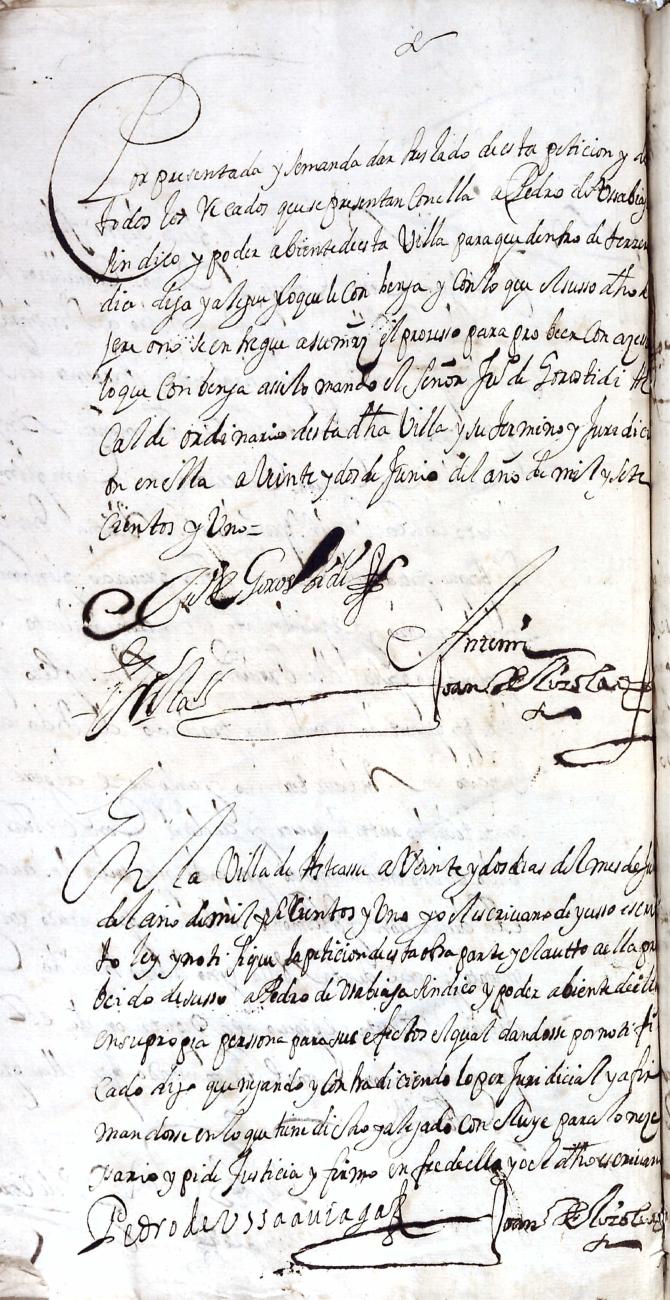 Por presentada y se manda dar treslado de esta peticion y de
todos los recados que se presentan con ella a Pedro de Ussabiaga
sindico y poder abiente de esta Villa para que dentro de terzero
dia diga y alegue lo que le conbenga y con lo que el susso dho
se entregue a su mrd el proceso para probeer con azuerdo
lo que conbenga assi lo mando el Señor Juº de Gorostidi Al
calde ordinario desta dha Villa y su termino y Juridici
on en ella a Veinte y dos de Junio del año de mil y sete
cientos y Uno=
Juº de Gorostidi
Antemi
Joan de
En la Villa de Asteassu a Veinte y dos dias del mes de Ju
del año de mil y setecientos y Uno yo el escrivano de yusso escri
to ley y notifique la peticion de esta otra parte y el autto a ella pro
beido de susso a Pedro de Usabiaga sindico y poder abiente de ella
en su propia perssona para sus efectos el qual dandosse por notifi
cado dijo que negando y contradiciendo lo perjuridicial y afir
mandosse en lo que tiene dicho y alegado concluye para lo neze
ssario y pide Justicia y firmo en fee de ello yo el dho escrivano
Pedro de Ussaviaga
Joan de